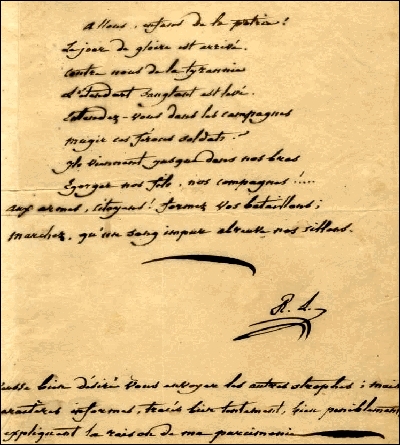 Allons, enfans de la patrie!
Le jour de gloire est arrivé.
Contre nous de la tyrannie
L'étendart sanglant est levé.
Entendez-vous dans les campagnes
mugir ces féroces soldats?
Ils viennent jusque dans nos bras
Egorger nos fils, nos compagnes!....
aux armes, citoyens! formez vos bataillons;
marchez, qu'un sang impur abreuve nos sillons.
R. L.
eusse bien désiré vous envoyer les autres strophes; mais
aractères informes, tracés bien lentement, bien péniblement
expliquent la raison de ma parcimonie